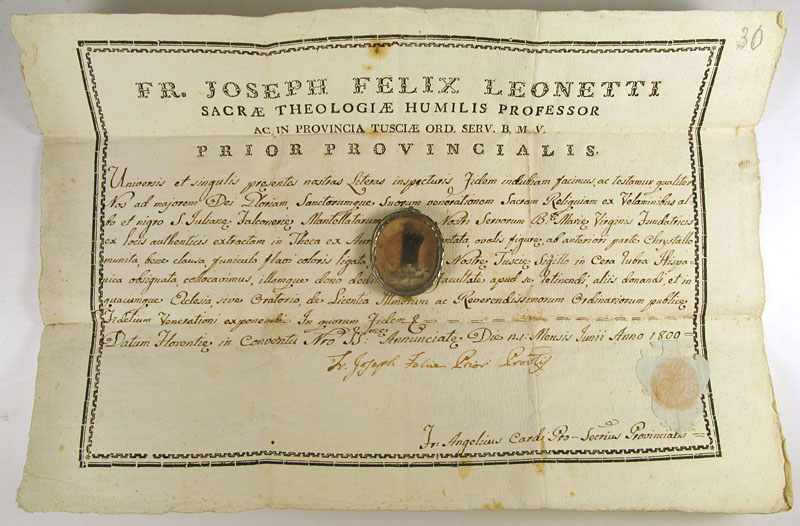 30
FR. JOSEPH FELIX LEONETTI
SACRÆ THEOLOGIÆ HUMILIS PROFESSOR
AC IN PROVINCIA TUSCIÆ ORD. SERV. B. M V.
PRIOR PROVINCIALIS.
Universis et singulis presentes nostras Literas inspecturis fidem indubiam facimus, ac testamur qualiter
Nos ad majorem Dei Gloriam, Sanctorumque Suorum venerationem Sacram Reliquiam ex Velaminibus al-
bo et nigro S. Juliane Falconerie Mantellatarum Servorum Bᵉ Marie Virginis Fundatricis
ex locis authenticis extractam in Theca ex ovalis figure, ab anteriori parte Chrystallo
munita, bene clausa, funiculo flavi coloris ligata Nostre Tuscie Sigillo in Cera rubra Hispa-
nica obsignata, collocavimus, illamque dono dedi facultate apud se retinendi, aliis donandi, et in
quacumque Eclesia sive Oratorio, de Licentia Illmorum ac Reverendissimorum Ordinariorum publice
Fidelium Venerationi exponendi. In quorum Fidem &
Datum Florentie in Conventu Nro SS. Annunciate Die Mensis Junii Anno 1800
Fr. Joseph Felix Prior Provlis
Fr. Angelius Cardi Pro-Socrius Provincialis